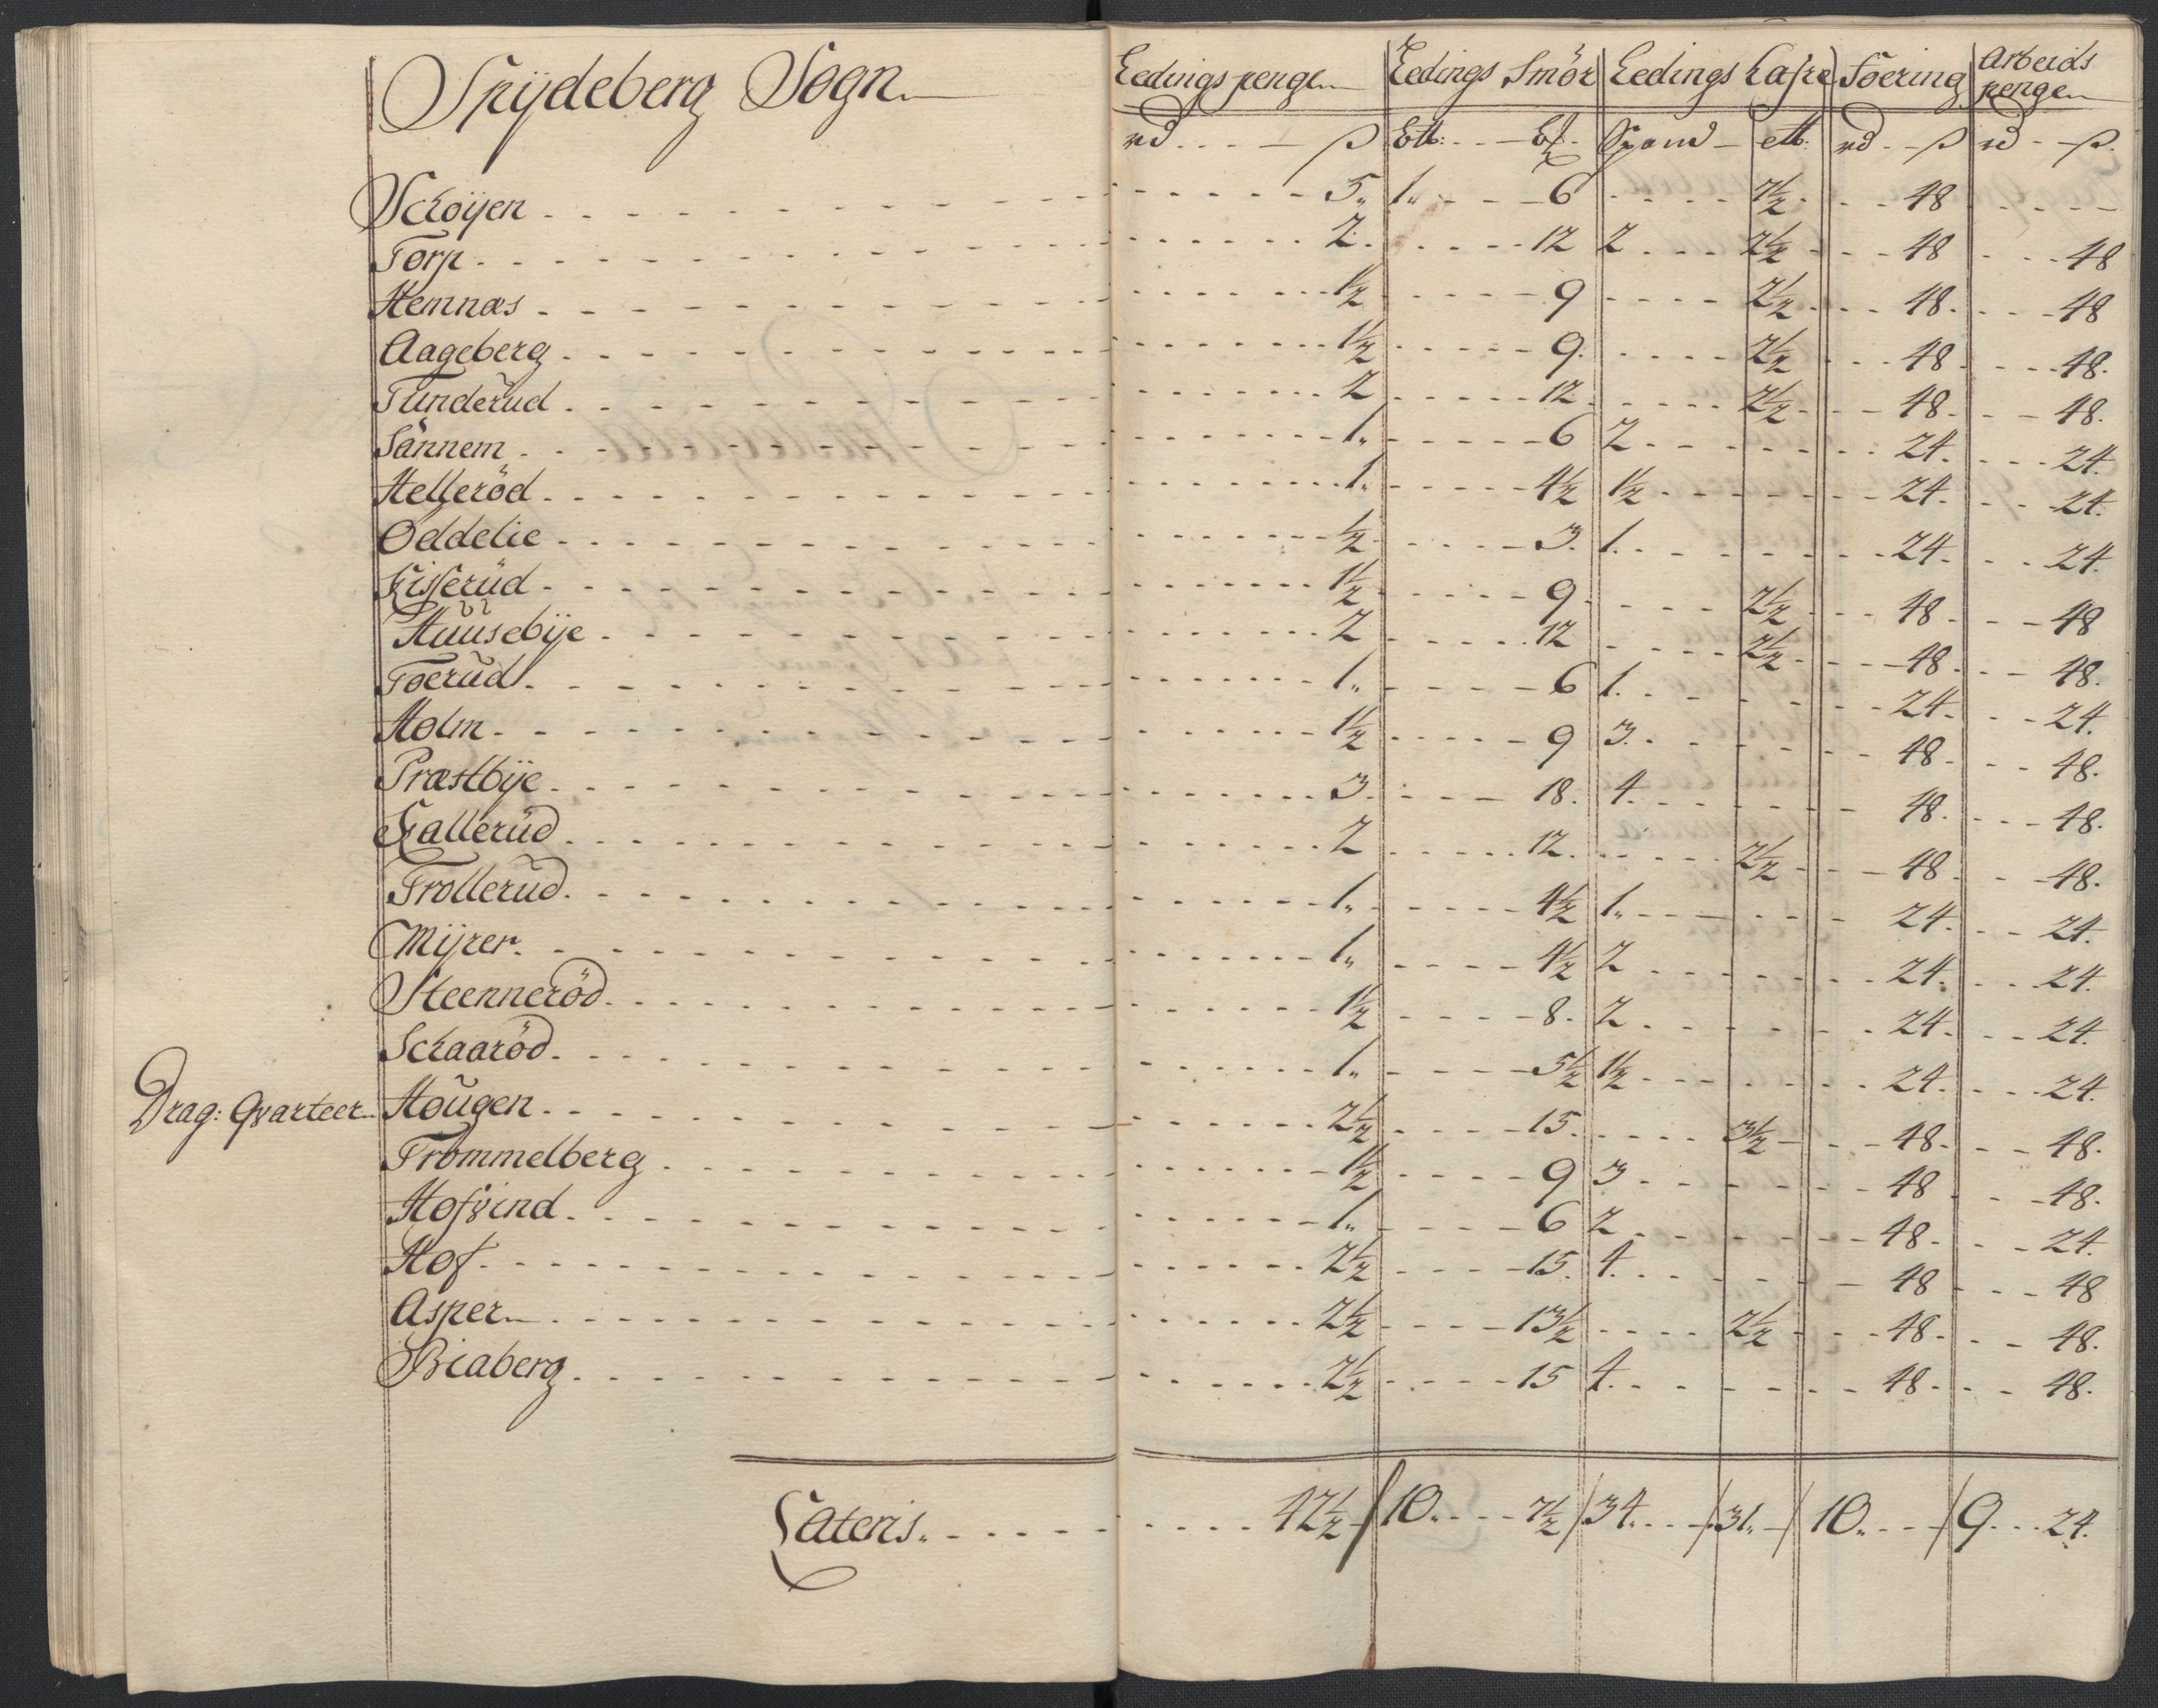 Spydeberg Sogn. Ledings pengen Ledings Smör Ledings Lafre Foering Arbeids pengen
rd ß ß rd ß rd ß
Schöyen 5 1 6 7½ 48
Torp 2 12 2 2½ 48 48
Hemnæs 1½ 9 2½ 48 48
Aageberg 1½ 9 2½ 48 48
Tunderŭd 2 12 2½ 48 48
Sannem 1 6 2 24 24
Helleröd 1 4½ 1½ 24 24
Oddelie ½ 3 1 24 24
Kisserüd 1½ 9 2½ 48 48
Hŭŭsebÿe 2 12 2½ 48 48
Toerŭd 1 6 1 24 24
Holm 1½ 9 3 48 48
Præstbÿe 3 18 4 48 48
Kallerŭd 2 12 2½ 48 48
Trollerŭd 1 4½ 1 24 24
Mÿrer 1 4½ 2 24 24
Steenneröd 1½ 8 2 24 24
Schaaröd 1 5½ 1½ 24 24
Drag: Qvarteer Hoŭgen 2½ 15 3½ 48 48
Trömmelberg 1½ 9 3 48 48
Hofvind 1 6 2 48 24
Hof 2½ 15 4 48 48
Asper 2½ 13½ 2½ 48 48
Biaberg 2½ 15 4 48 48
Lateris 42½ 10 7½ 34 31 10 9 24